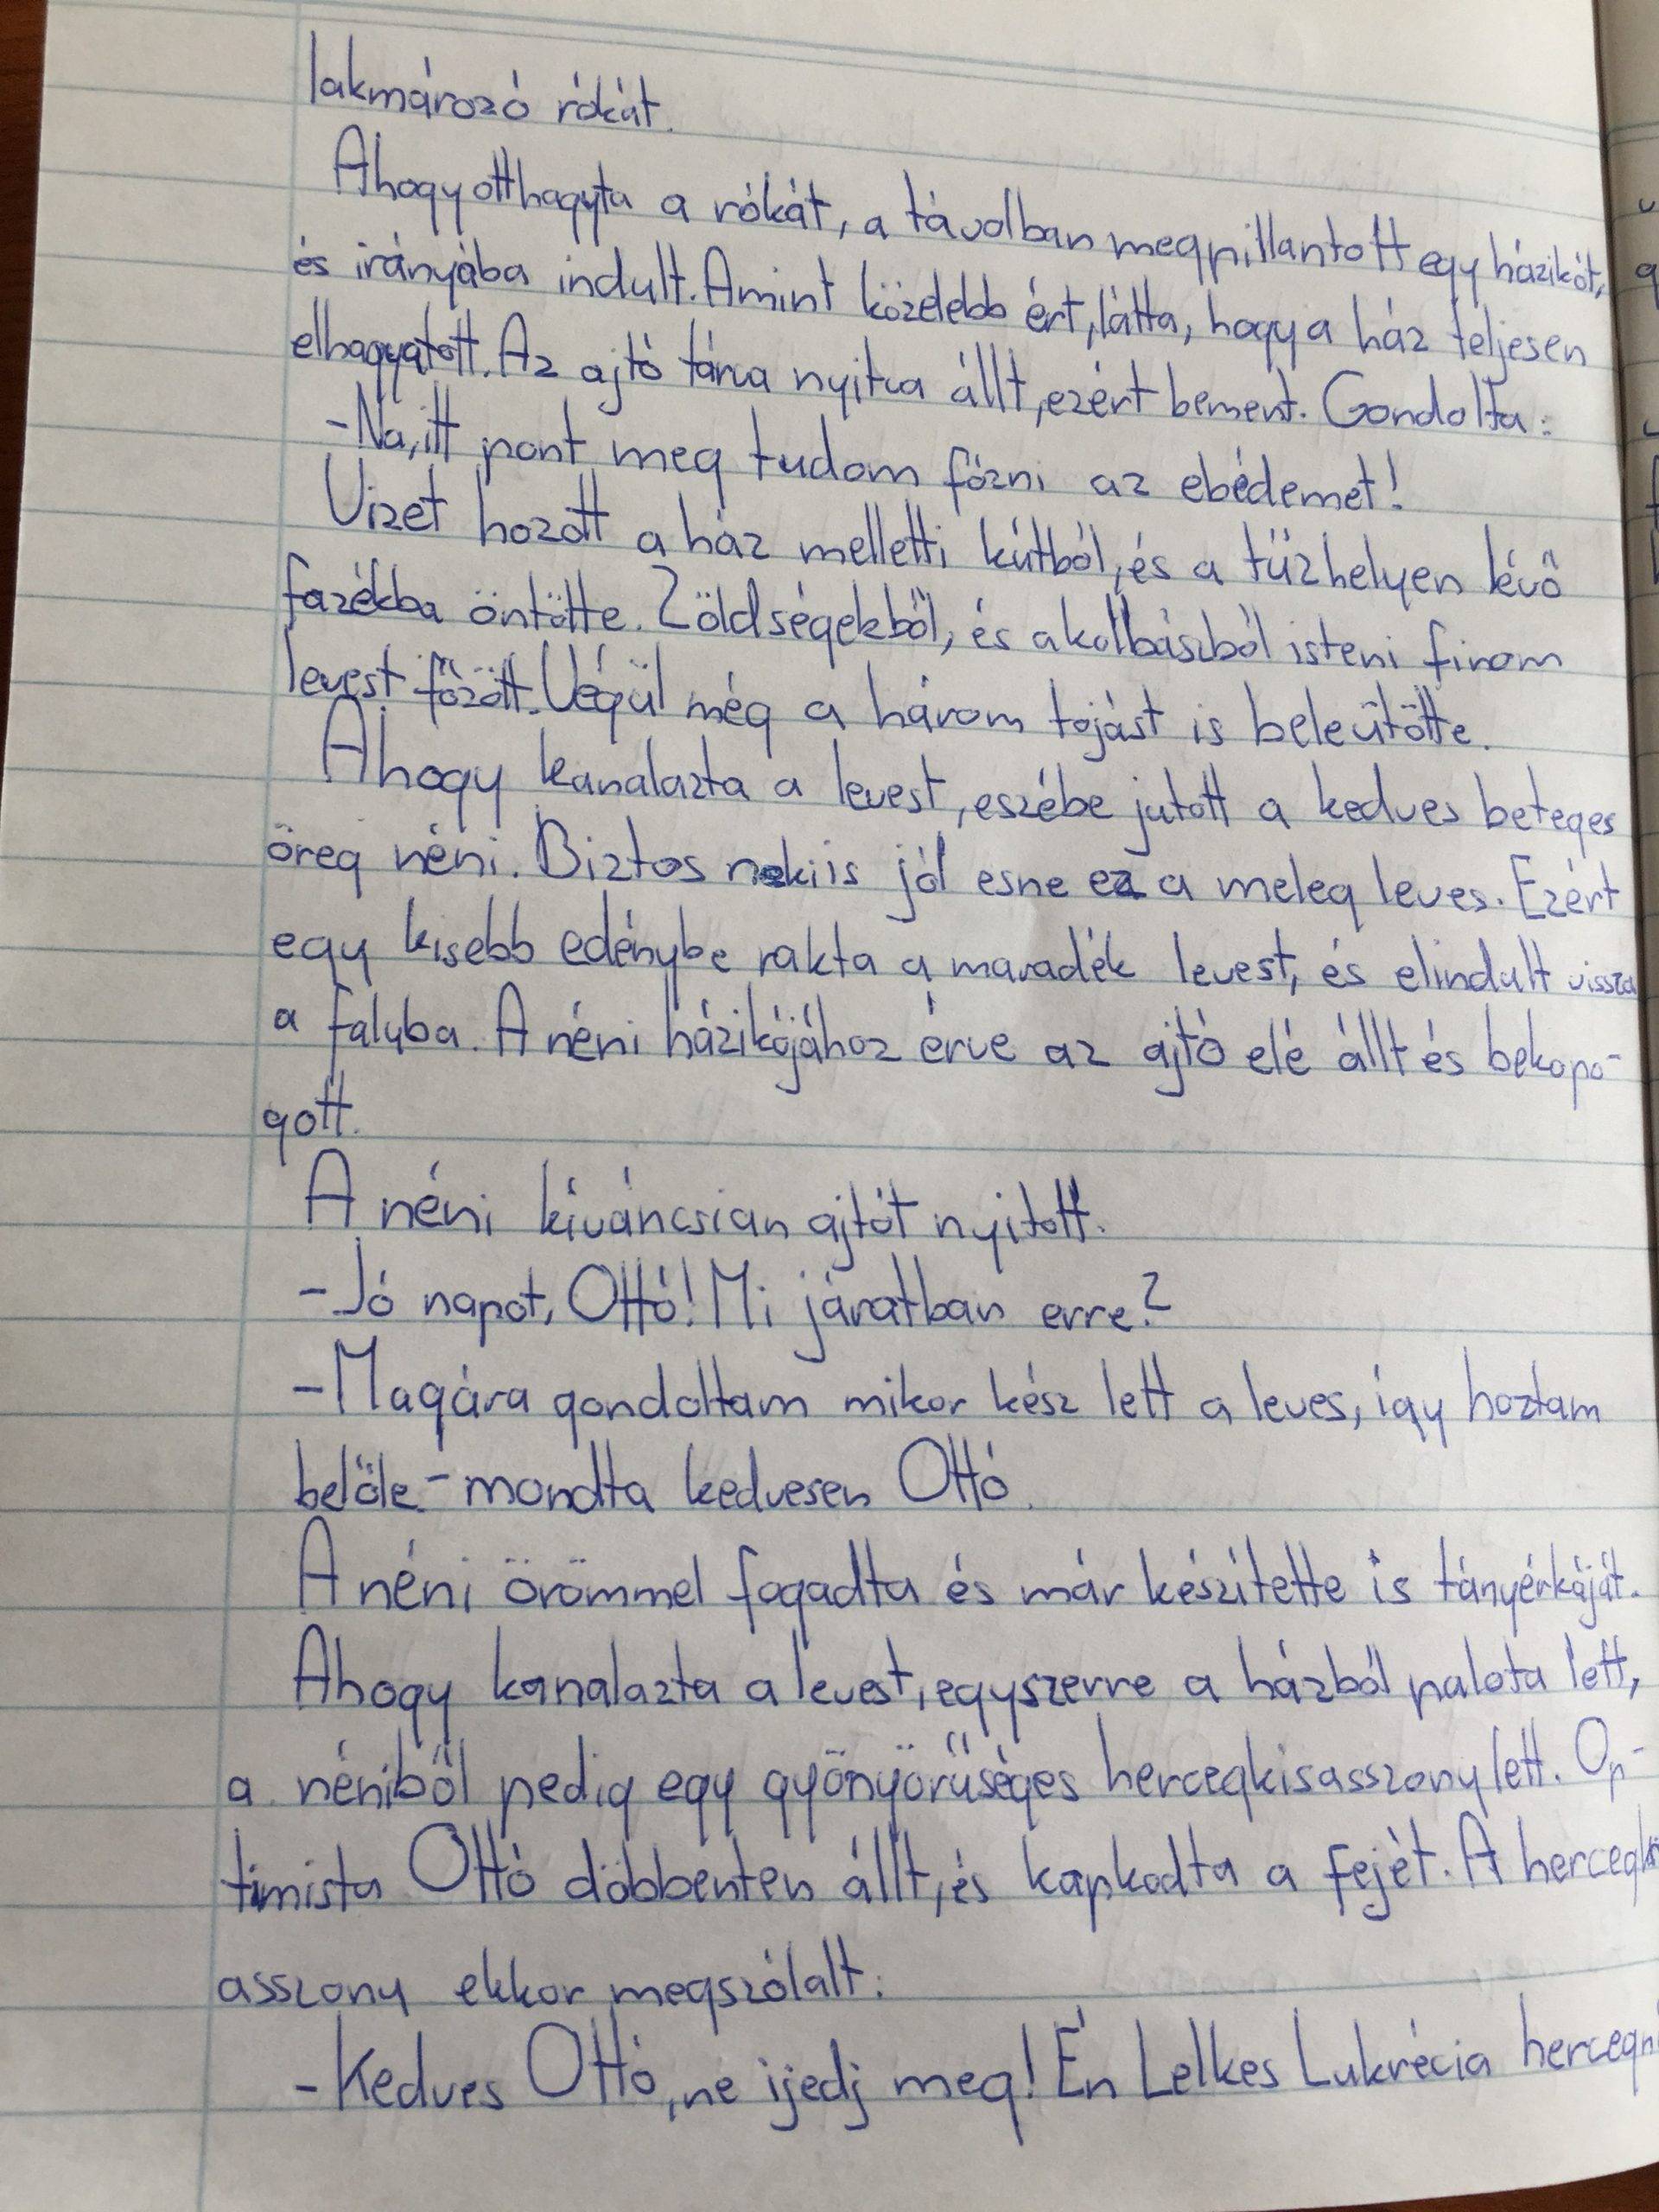 lakmározó rókát.
Ahogy otthagyta a rókát, a távolban megpillantott egy házikót,
és irányába indult. Amint közelebb ért, látta, hogy a ház teljesen
elhagyatott. Az ajtó tárva nyitva állt, ezért bement. Gondolta:
-Na, itt pont meg tudom főzni az ebédemet!
Vizet hozott a ház melletti kútból, és a tűzhelyen lévő
fazékba öntötte. Zöldségekből, és a kolbászból isteni finom
levest főzött. Végül még a három tojást is beleütötte.
Ahogy kanalazta a levest, eszébe jutott a kedves beteges
öreg néni. Biztos neki is jól esne ez a meleg leves. Ezért
egy kisebb edénybe rakta a maradék levest, és elindult vissza
a faluba. A néni házikójához érve az ajtó elé állt és bekopo-
gott.
A néni kíváncsian ajtót nyitott.
-Jó napot, Ottó! Mi járatban erre?
-Magára gondoltam mikor kész lett a leves, így hoztam
belőle - mondta kedvesen Ottó.
A néni örömmel fogadta és már készítette is tányérkáját.
Ahogy kanalazta a levest, egyszerre a házból palota lett,
a néniből pedig egy gyönyörűséges hercegkisasszony lett. Op-
timista Ottó döbbenten állt, és kapkodta a fejét. A hercegkis
asszony ekkor megszólalt:
-Kedves Ottó, ne ijedj meg! Én Lelkes Lukrécia hercegn